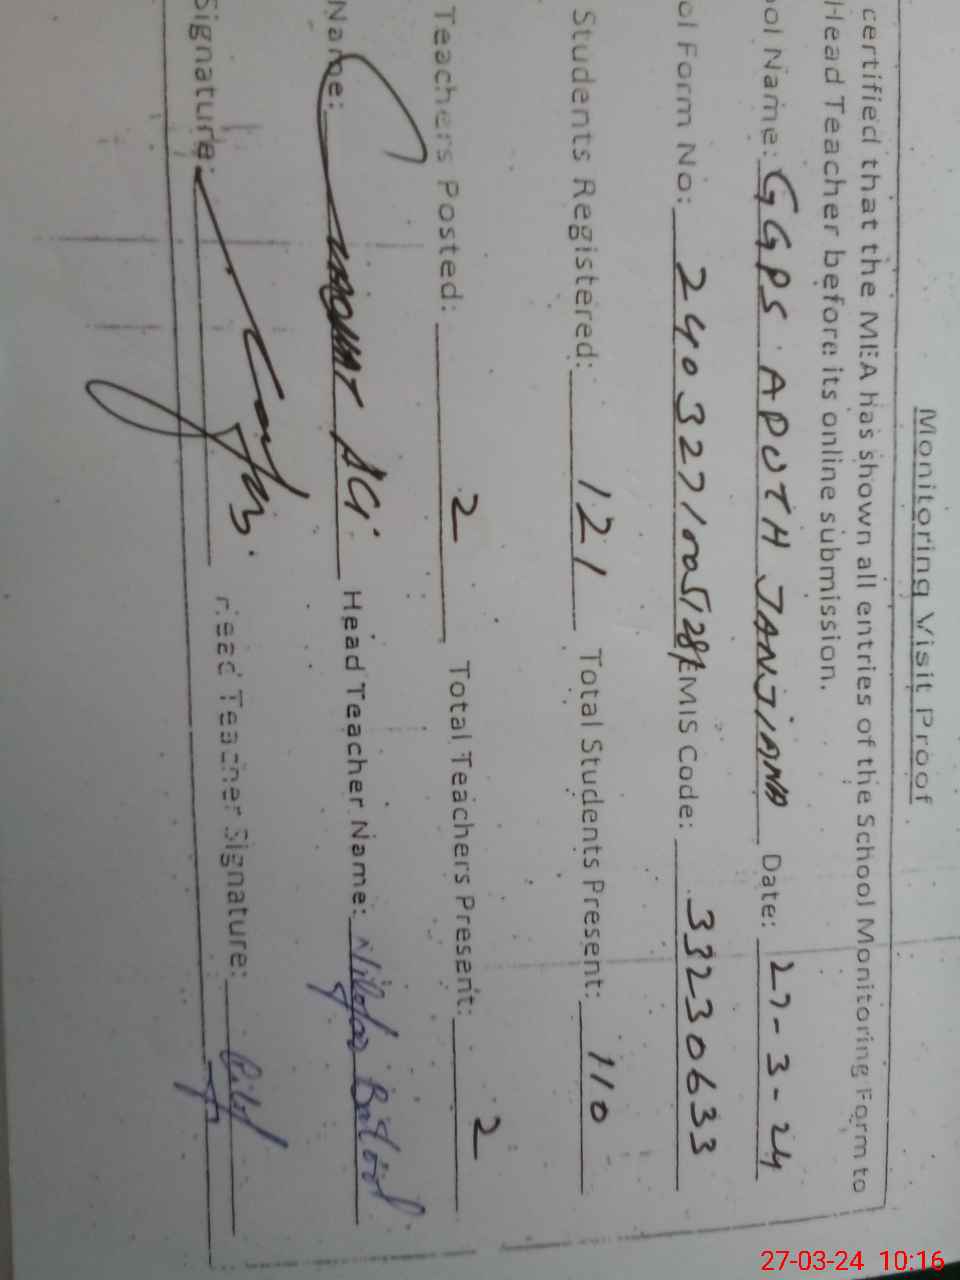 Monitoring Visit Proof
certified that the MEA has shown all entries of the School Monitoring Form to
Head Teacher before its online submission.
ool Name: GGPS APOTH JANJIANA Date: 27-3-24
ol Form No: EMIS Code: 33230633
Students Registered: 121 Total Students Present: 110
Teachers Posted: 2 Total Teachers Present: 2
Name: Head Teacher Name: Nilofar Batool
Signature: Head Teacher Signature:
27-03-24 10:16